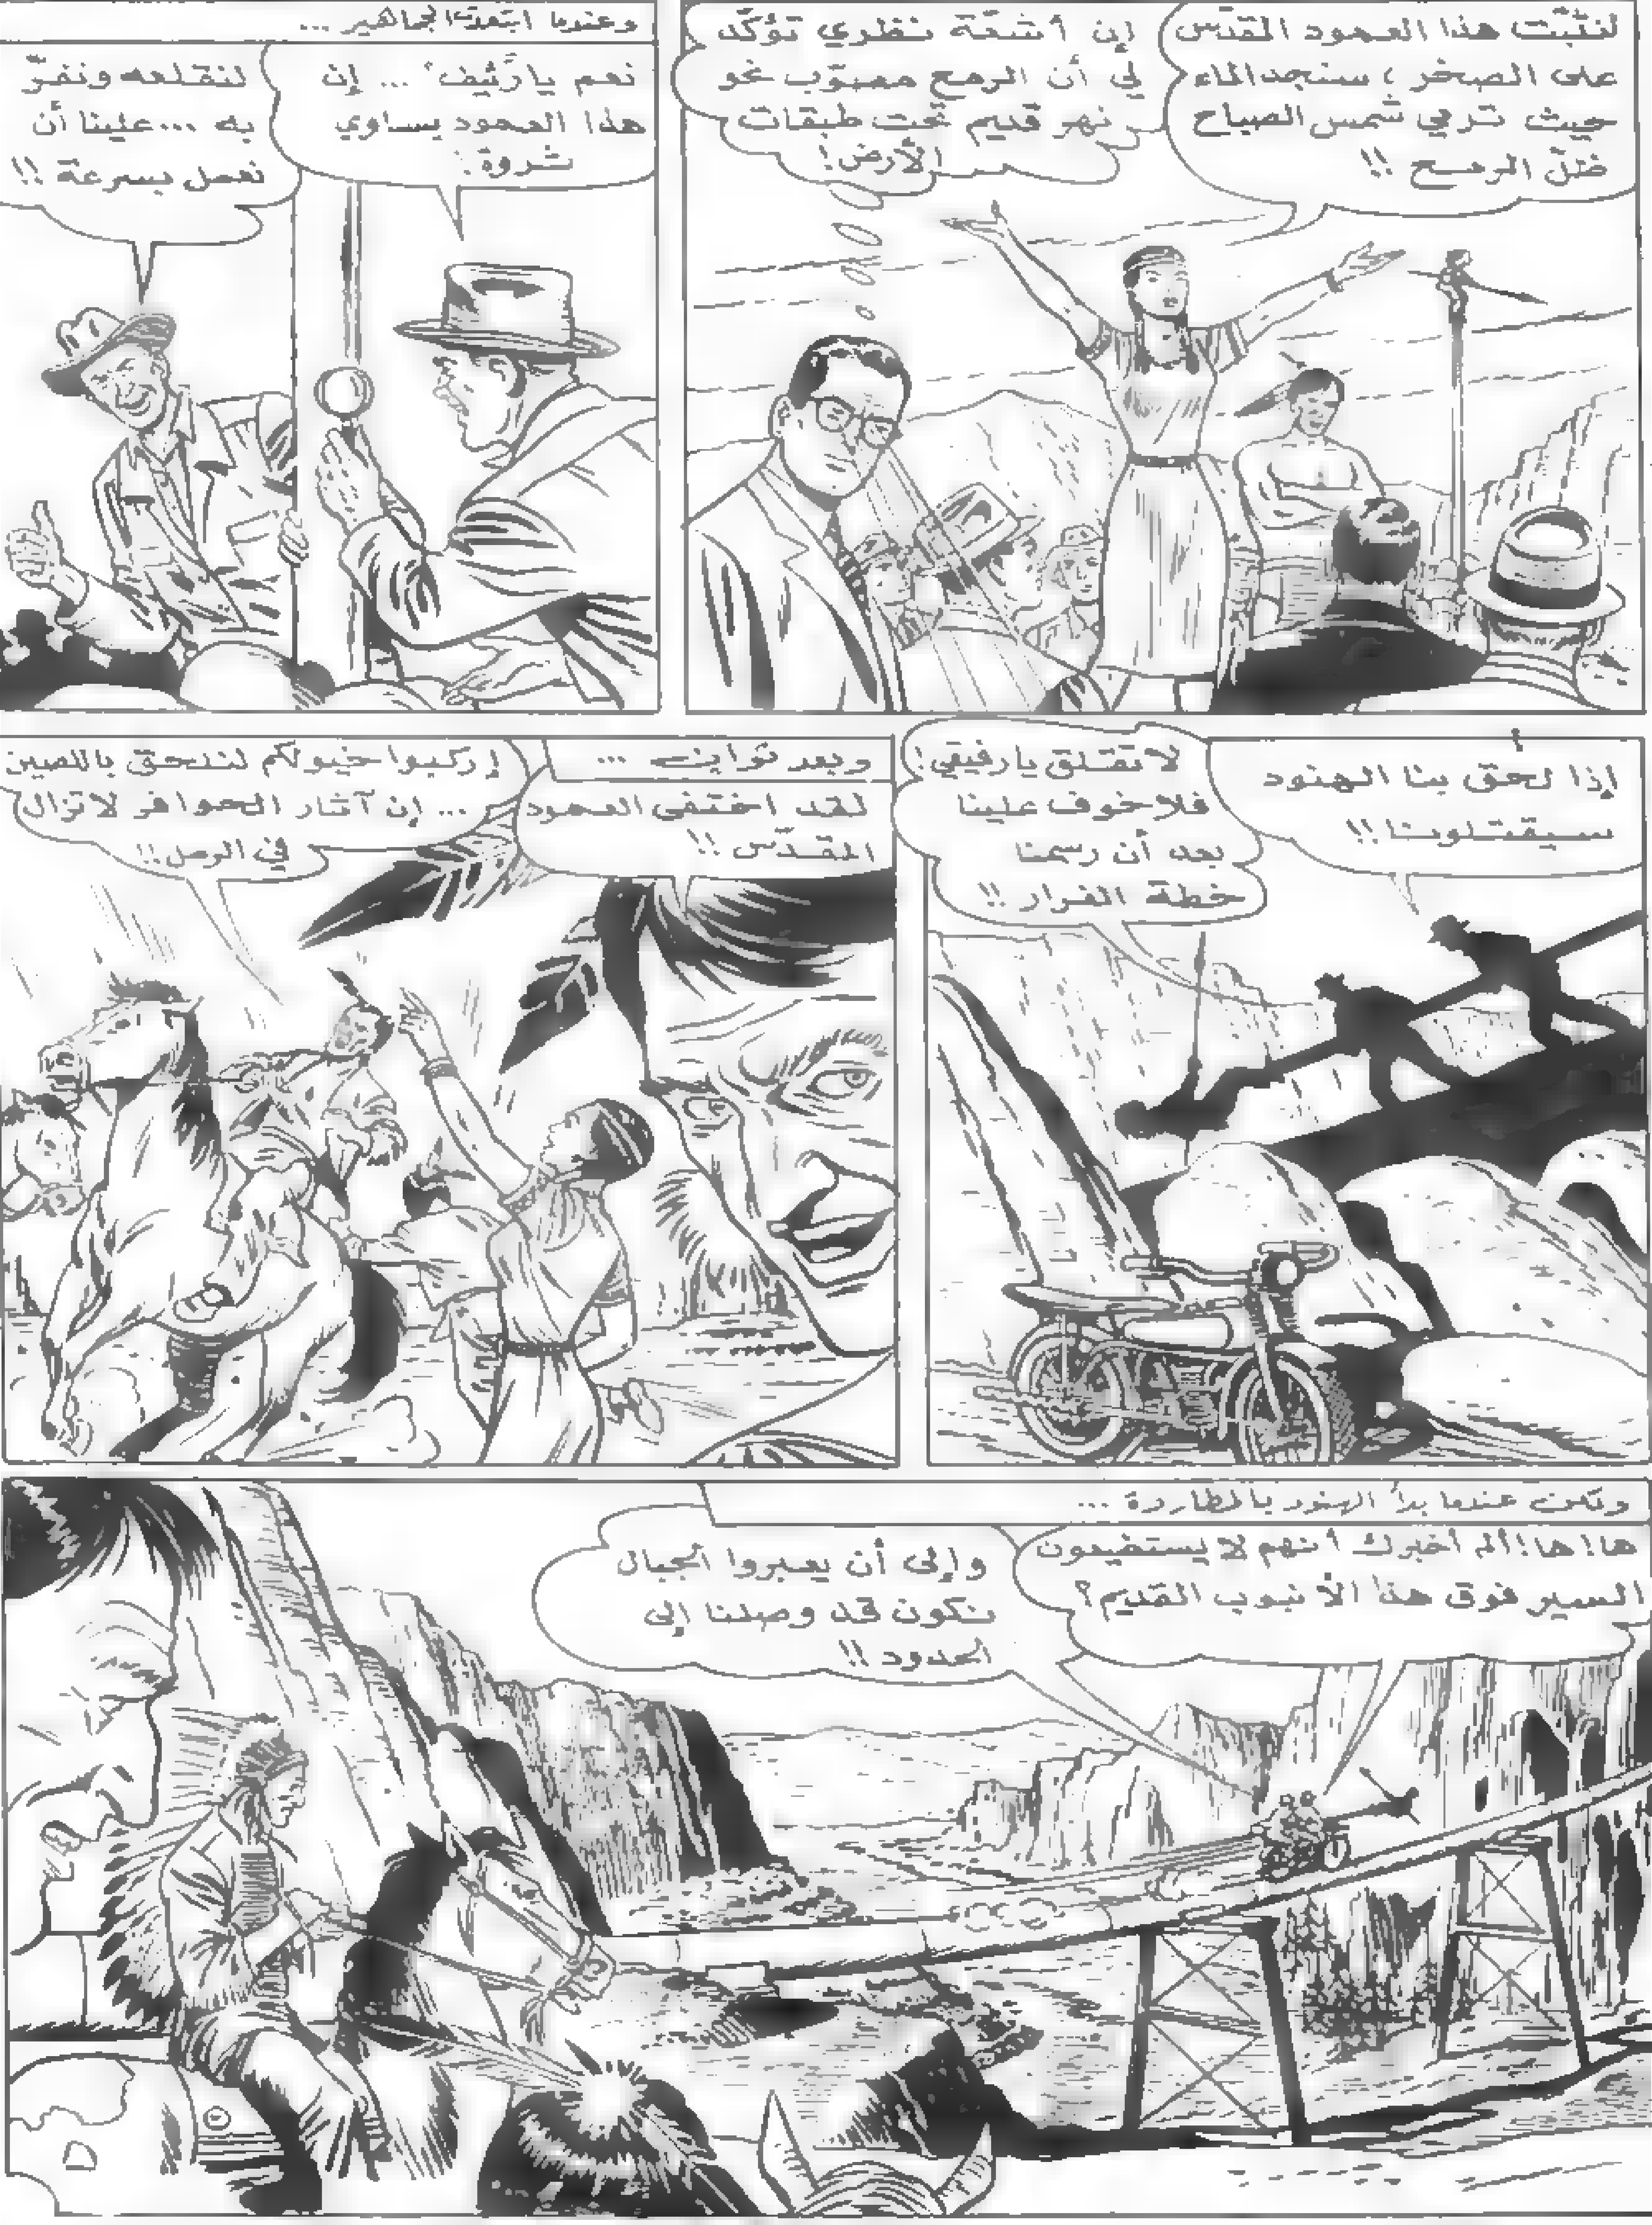 لنثبّت هذا العمود المقدّس
على الصخر، سنجد الماء
حيث ترمي شمس الصباح
ظلّ الرمح !!
إن أشعّة نظري تؤكّد
لي أن الرمح مصوّب نحو
نهر قديم تحت طبقات
الأرض !
وعندما ابتعدت الجماهير ...
نعم يا رئيف ... إن
هذا العمود يساوي
ثروة !
لنقلعه ونفرّ
به ... علينا أن
نعمل بسرعة !!
إذا لحق بنا الهنود
سيقتلوننا !!
لا تقلق يا رفيقي !
فلا خوف علينا
بعد أن رسمنا
خطة الفرار !!
وبعد ثوانٍ ...
لقد اختفى العمود
المقدّس !!
إركبوا خيولكم لنلحق باللصين
... إن آثار الحوافر لا تزال
في الرمل !!
ولكن عندما بدأ الهنود بالمطاردة ...
ها ! ها ! ألم أخبرك أنهم لا يستطيعون
السير فوق هذا الأنبوب القديم ؟
وإلى أن يعبروا الجبال
نكون قد وصلنا إلى
الحدود !!